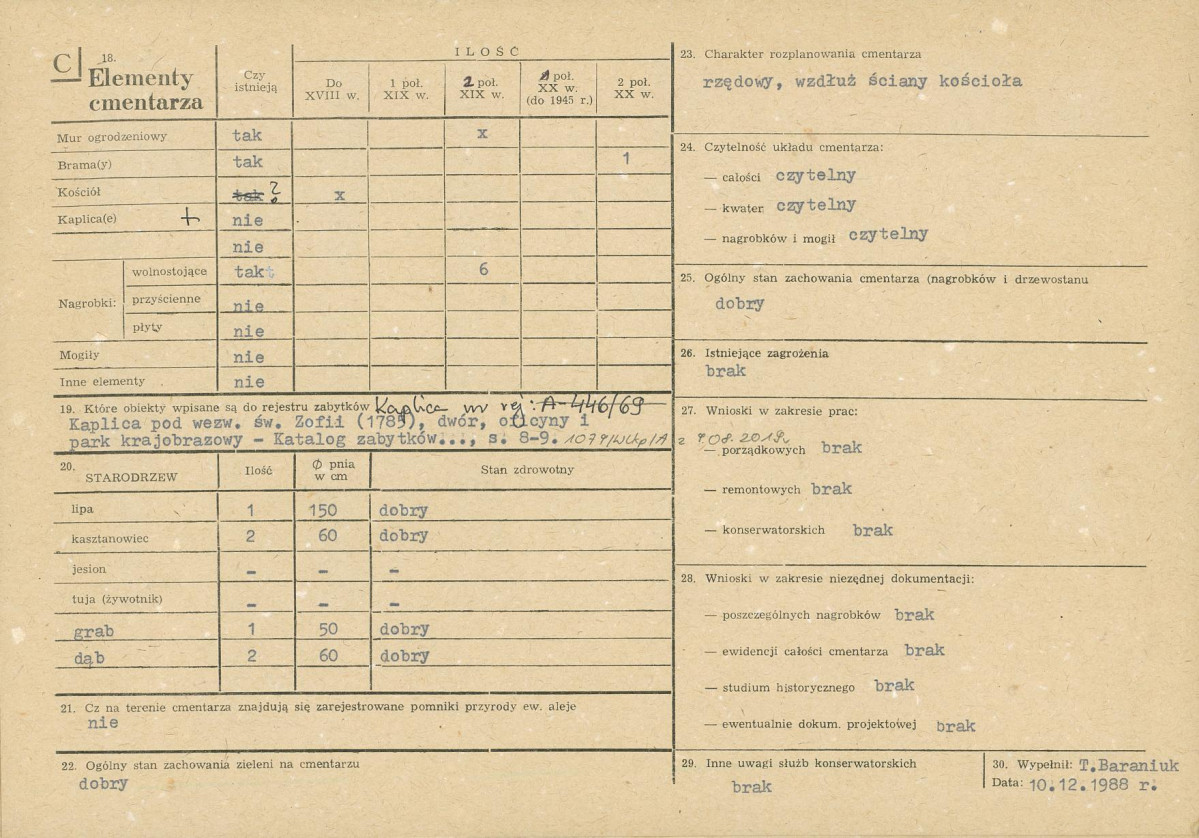 C
18.
Elementy
cmentarza
Czy
istnieją
ILOŚĆ
Do
XVIII w.
1 poł.
XIX w.
2 poł.
XIX w.
1 poł.
XX w.
(do 1945 r.)
2 poł.
XX w.
Mur ogrodzeniowy tak x
Brama(y) tak 1
Kościół tak ? x
Kaplica(e) + nie
nie
Nagrobki:
wolnostojące takt 6
przyścienne nie
płyty nie
Mogiły nie
Inne elementy nie
19. Które obiekty wpisane są do rejestru zabytków Kaplica nr rej: A-446/69
Kaplica pod wezw. św. Zofii (1789), dwór, oficyny i
park krajobrazowy – Katalog zabytków..., s. 8-9. 1079/Wlkp/A z 7.08.2019r.
20.
STARODRZEW
Ilość
Ø pnia
w cm
Stan zdrowotny
lipa 1 150 dobry
kasztanowiec 2 60 dobry
jesion – – –
tuja (żywotnik) – – –
grab 1 50 dobry
dąb 2 60 dobry
21. Cz na terenie cmentarza znajdują się zarejestrowane pomniki przyrody ew. aleje
nie
22. Ogólny stan zachowania zieleni na cmentarzu
dobry
23. Charakter rozplanowania cmentarza
rzędowy, wzdłuż ściany kościoła
24. Czytelność układu cmentarza:
— całości czytelny
— kwater czytelny
— nagrobków i mogił czytelny
25. Ogólny stan zachowania cmentarza (nagrobków i drzewostanu
dobry
26. Istniejące zagrożenia
brak
27. Wnioski w zakresie prac:
— porządkowych brak
— remontowych brak
— konserwatorskich brak
28. Wnioski w zakresie niezędnej dokumentacji:
— poszczególnych nagrobków brak
— ewidencji całości cmentarza brak
— studium historycznego brak
— ewentualnie dokum. projektowej brak
29. Inne uwagi służb konserwatorskich
brak
30. Wypełnił: T.Baraniuk
Data: 10.12.1988 r.